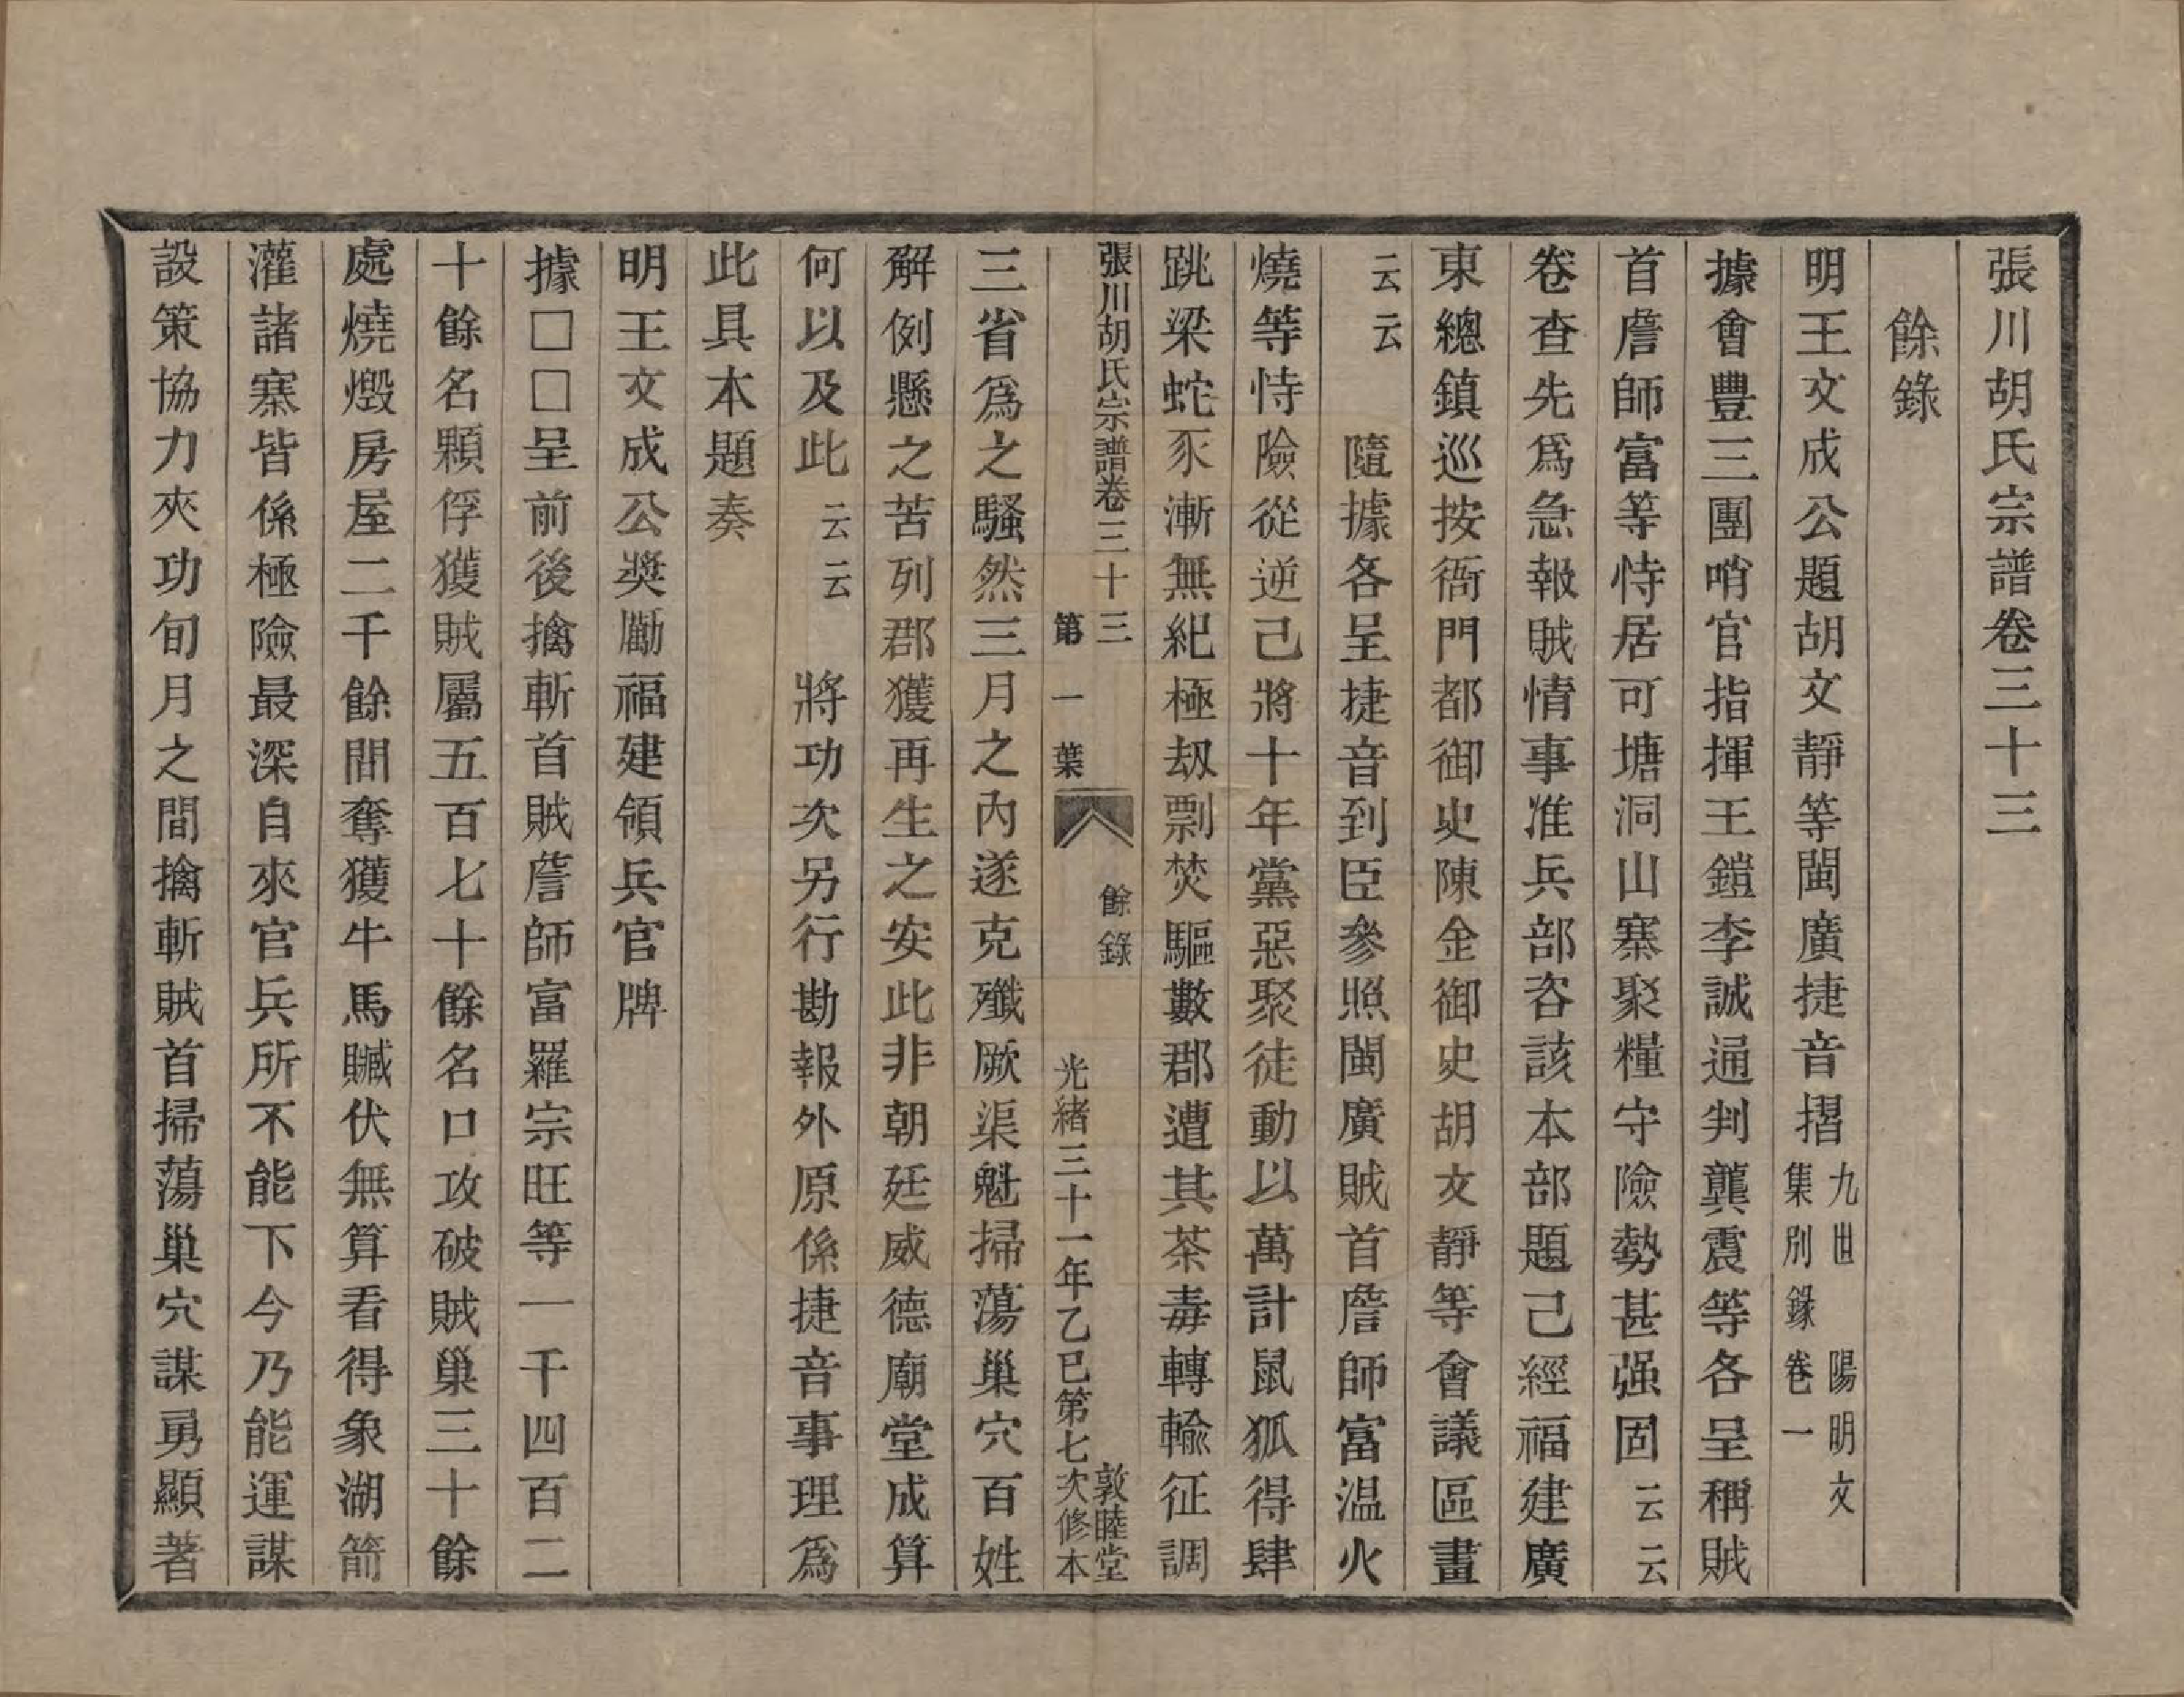 張川胡氏宗譜卷三十三
餘錄
明王文成公題胡文靜等閩廣捷音摺九世陽明文
集別錄卷一
據會豐三團哨官指揮王鎧李誠通判龔震等各呈稱賊
首詹師富等恃居可塘洞山寨聚糧守險勢甚强固云云
卷查先爲急報賊情事准兵部咨該本部題己經福建廣
東總鎮巡按衙門都御史陳金御史胡文靜等會議區畫
云云 隨據各呈捷音到臣參照閩廣賊首詹師富温火
燒等恃險從逆己將十年黨惡聚徒動以萬計鼠狐得肆
跳梁蛇豕漸無紀極刼剽焚驅數郡遭其荼毒轉輸征調
張川胡氏宗譜卷三十三 餘錄 敦睦堂
第一葉 光緒三十一年乙巳第七次修本
三省爲之騷然三月之內遂克殲厥渠魁掃蕩巢穴百姓
解例懸之苦列郡獲再生之安此非朝廷威德廟堂成算
何以及此云云 將功次另行勘報外原係捷音事理爲
此具本題奏
明王文成公奬勵福建領兵官牌
據□□呈前後擒斬首賊詹師富羅宗旺等一千四百二
十餘名顆俘獲賊屬五百七十餘名口攻破賊巢三十餘
處燒燬房屋二千餘間奪獲牛馬贓伏無算看得象湖箭
灌諸寨皆係極險最深自來官兵所不能下今乃能運謀
設策協力夾功旬月之間擒斬賊首掃蕩巢穴謀勇顯著